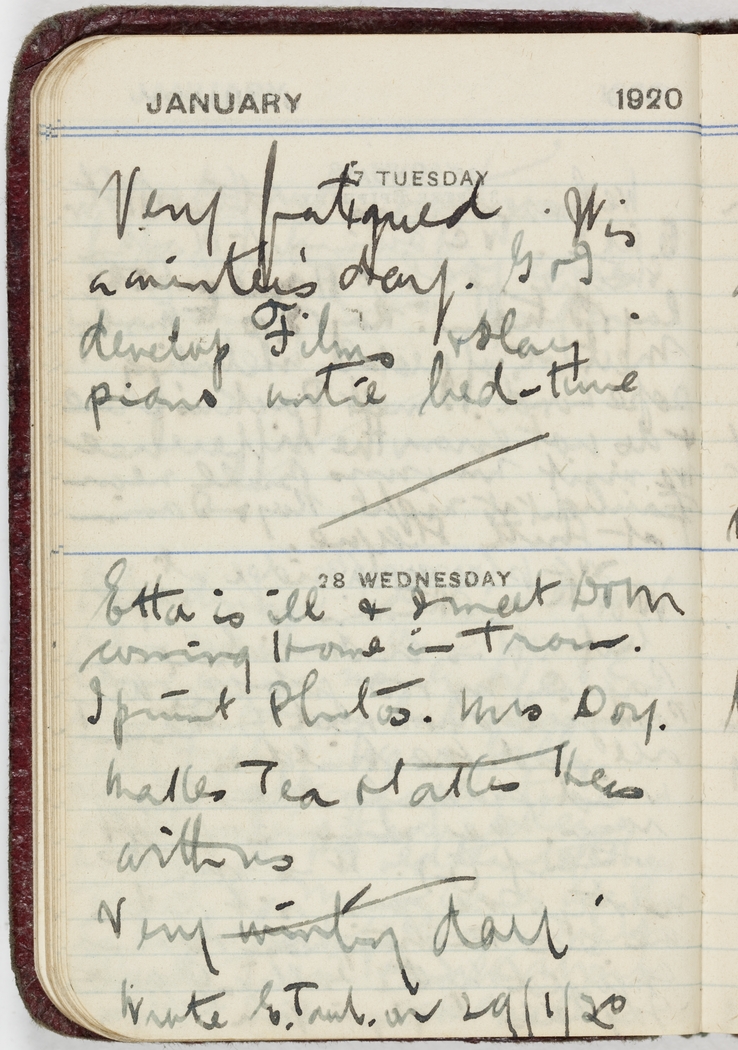 JANUARY 1920
27 TUESDAY
Very fatigued. This
a winter's day. G & I
develop Films & play
piano until bed-time
28 WEDNESDAY
Etta is ill & I meet Dom
coming Home in Tram.
I print Photos. Mrs Doy.
Makes Tea & takes Hers
with us
Very wintry day
Wrote on 29/1/20